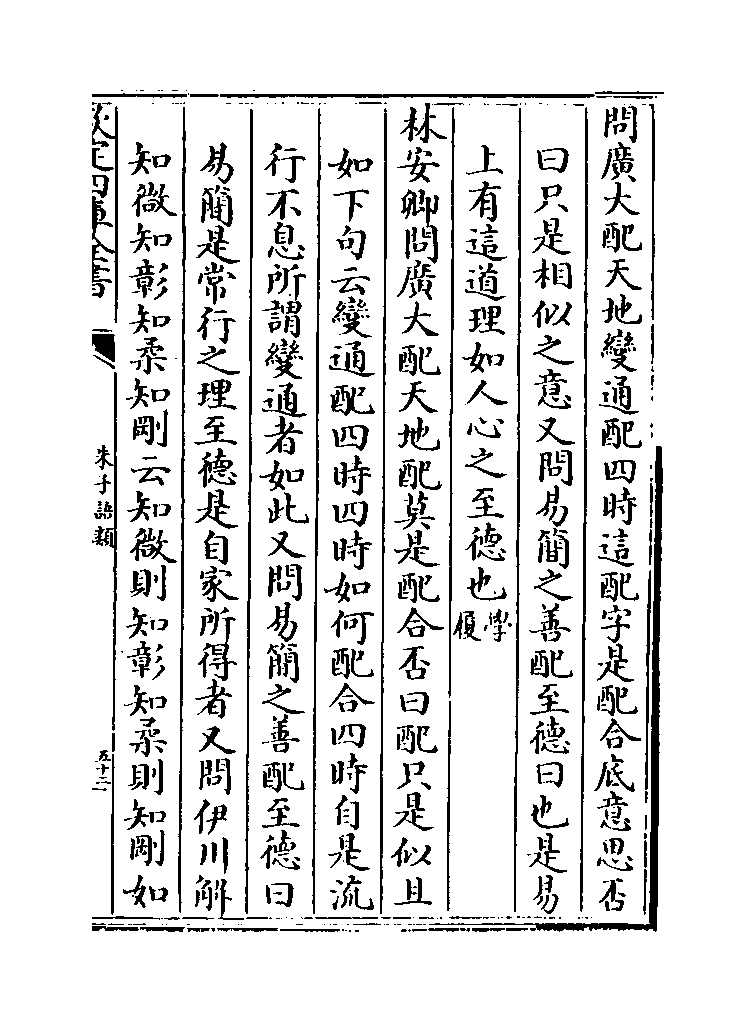 問廣大配天地變通配四時這配字是配合底意思否
曰只是相似之意又問易簡之善配至德曰也是易
上有這道理如人心之至德也學履
林安卿問廣大配天地配莫是配合否曰配只是似且
如下句云變通配四時四時如何配合四時自是流
行不息所謂變通者如此又問易簡之善配至德曰
易簡是常行之理至德是自家所得者又問伊川解
知微知彰知柔知剛云知微則知彰知柔則知剛如
欽定四庫全書
朱子語類
五十三